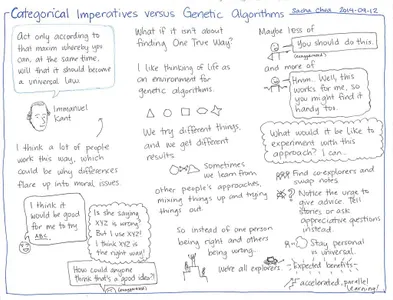 Categorical Imperatives versus Genetic Algorithms
Sacha Chua 2014-09-12
Act only according
to that maxim whereby you
can, at the same time,
will that it should become
a universal law.
Immanuel
Kant
I think a lot of people
work this way, which
could be why differences
flare up into moral issues.
I think it
would be good
for me to try
ABC.
Is she saying
XYZ is wrong?
But I use XYZ!
I think XYZ is
the right way!
How could anyone
think that's a good idea?!
(exaggerated)
What if it isn't about
finding One True Way?
I like thinking of life as
an environment for
genetic algorithms.
We try different things,
and we get different
results.
Sometimes
we learn from
other people's approaches,
mixing things up and trying
things out.
So instead of one person
being right and others
being wrong...
We're all explorers.
Maybe less of
You should do this.
(exaggerated)
and more of
Hmm. Well, this
works for me, so
you might find it
handy too.
What would it be like to
experiment with this
approach? I can...
Find co-explorers and
swap notes.
Notice the urge to
give advice. Tell
stories or ask
appreciative questions
instead.
Stay personal
vs. universal.
Expected benefits:
accelerated, parallel
learning!